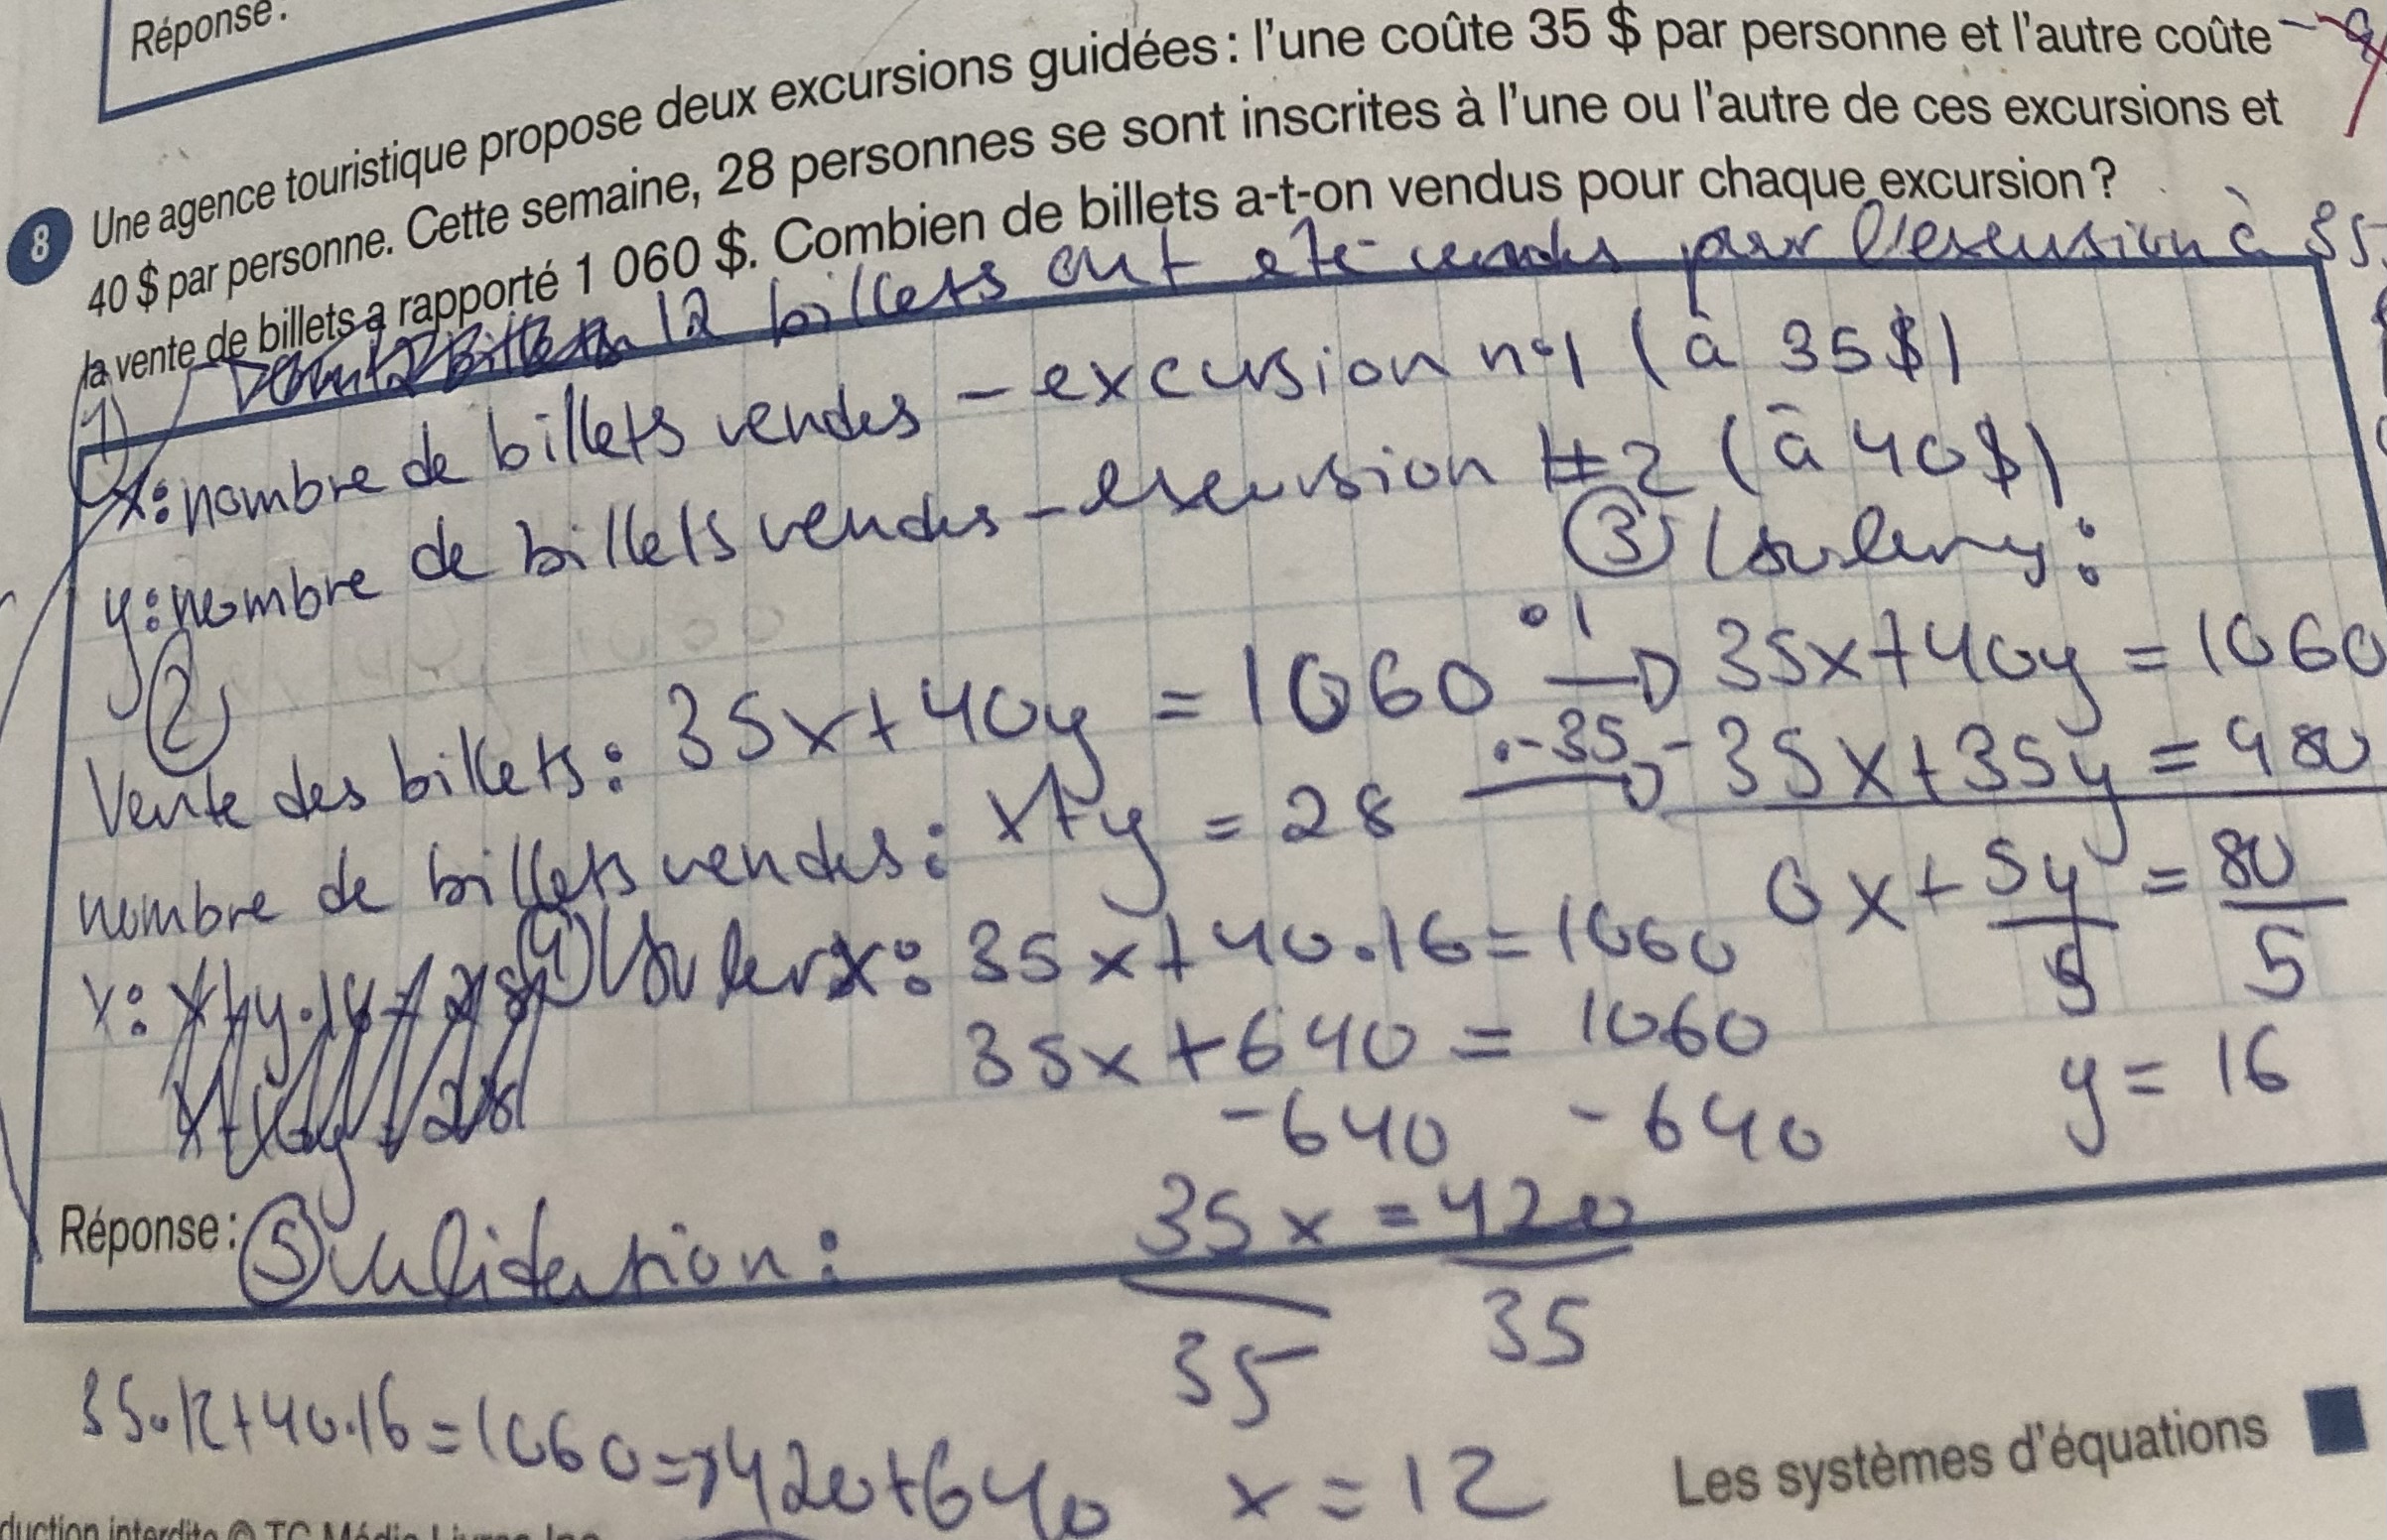 Réponse:
8 Une agence touristique propose deux excursions guidées : l'une coûte 35 $ par personne et l'autre coûte
40 $ par personne. Cette semaine, 28 personnes se sont inscrites à l'une ou l'autre de ces excursions et
la vente de billets a rapporté 1 060 $. Combien de billets a-t-on vendus pour chaque excursion ?
12 billets ont été vendus pour l'excursion à 35
1)
x: nombre de billets vendus - excursion n°1 (à 35$)
y: nombre de billets vendus - excursion #2 (à 40$)
2
3
Vente des billets: 35x+40y = 1060 •1 → 35x+40y = 1060
nombre de billets vendus: x+y = 28 •-35 → -35x+35y = 980
0x + 5y/5 = 80/5
y = 16
x:
4) x: 35x+40•16=1060
35x+640 = 1060
-640 -640
35x = 420
35 35
x = 12
Réponse: 5 validation:
35•12+40•16=1060=>420+640
Les systèmes d'équations
duction interdite © TC Média Livres Inc.